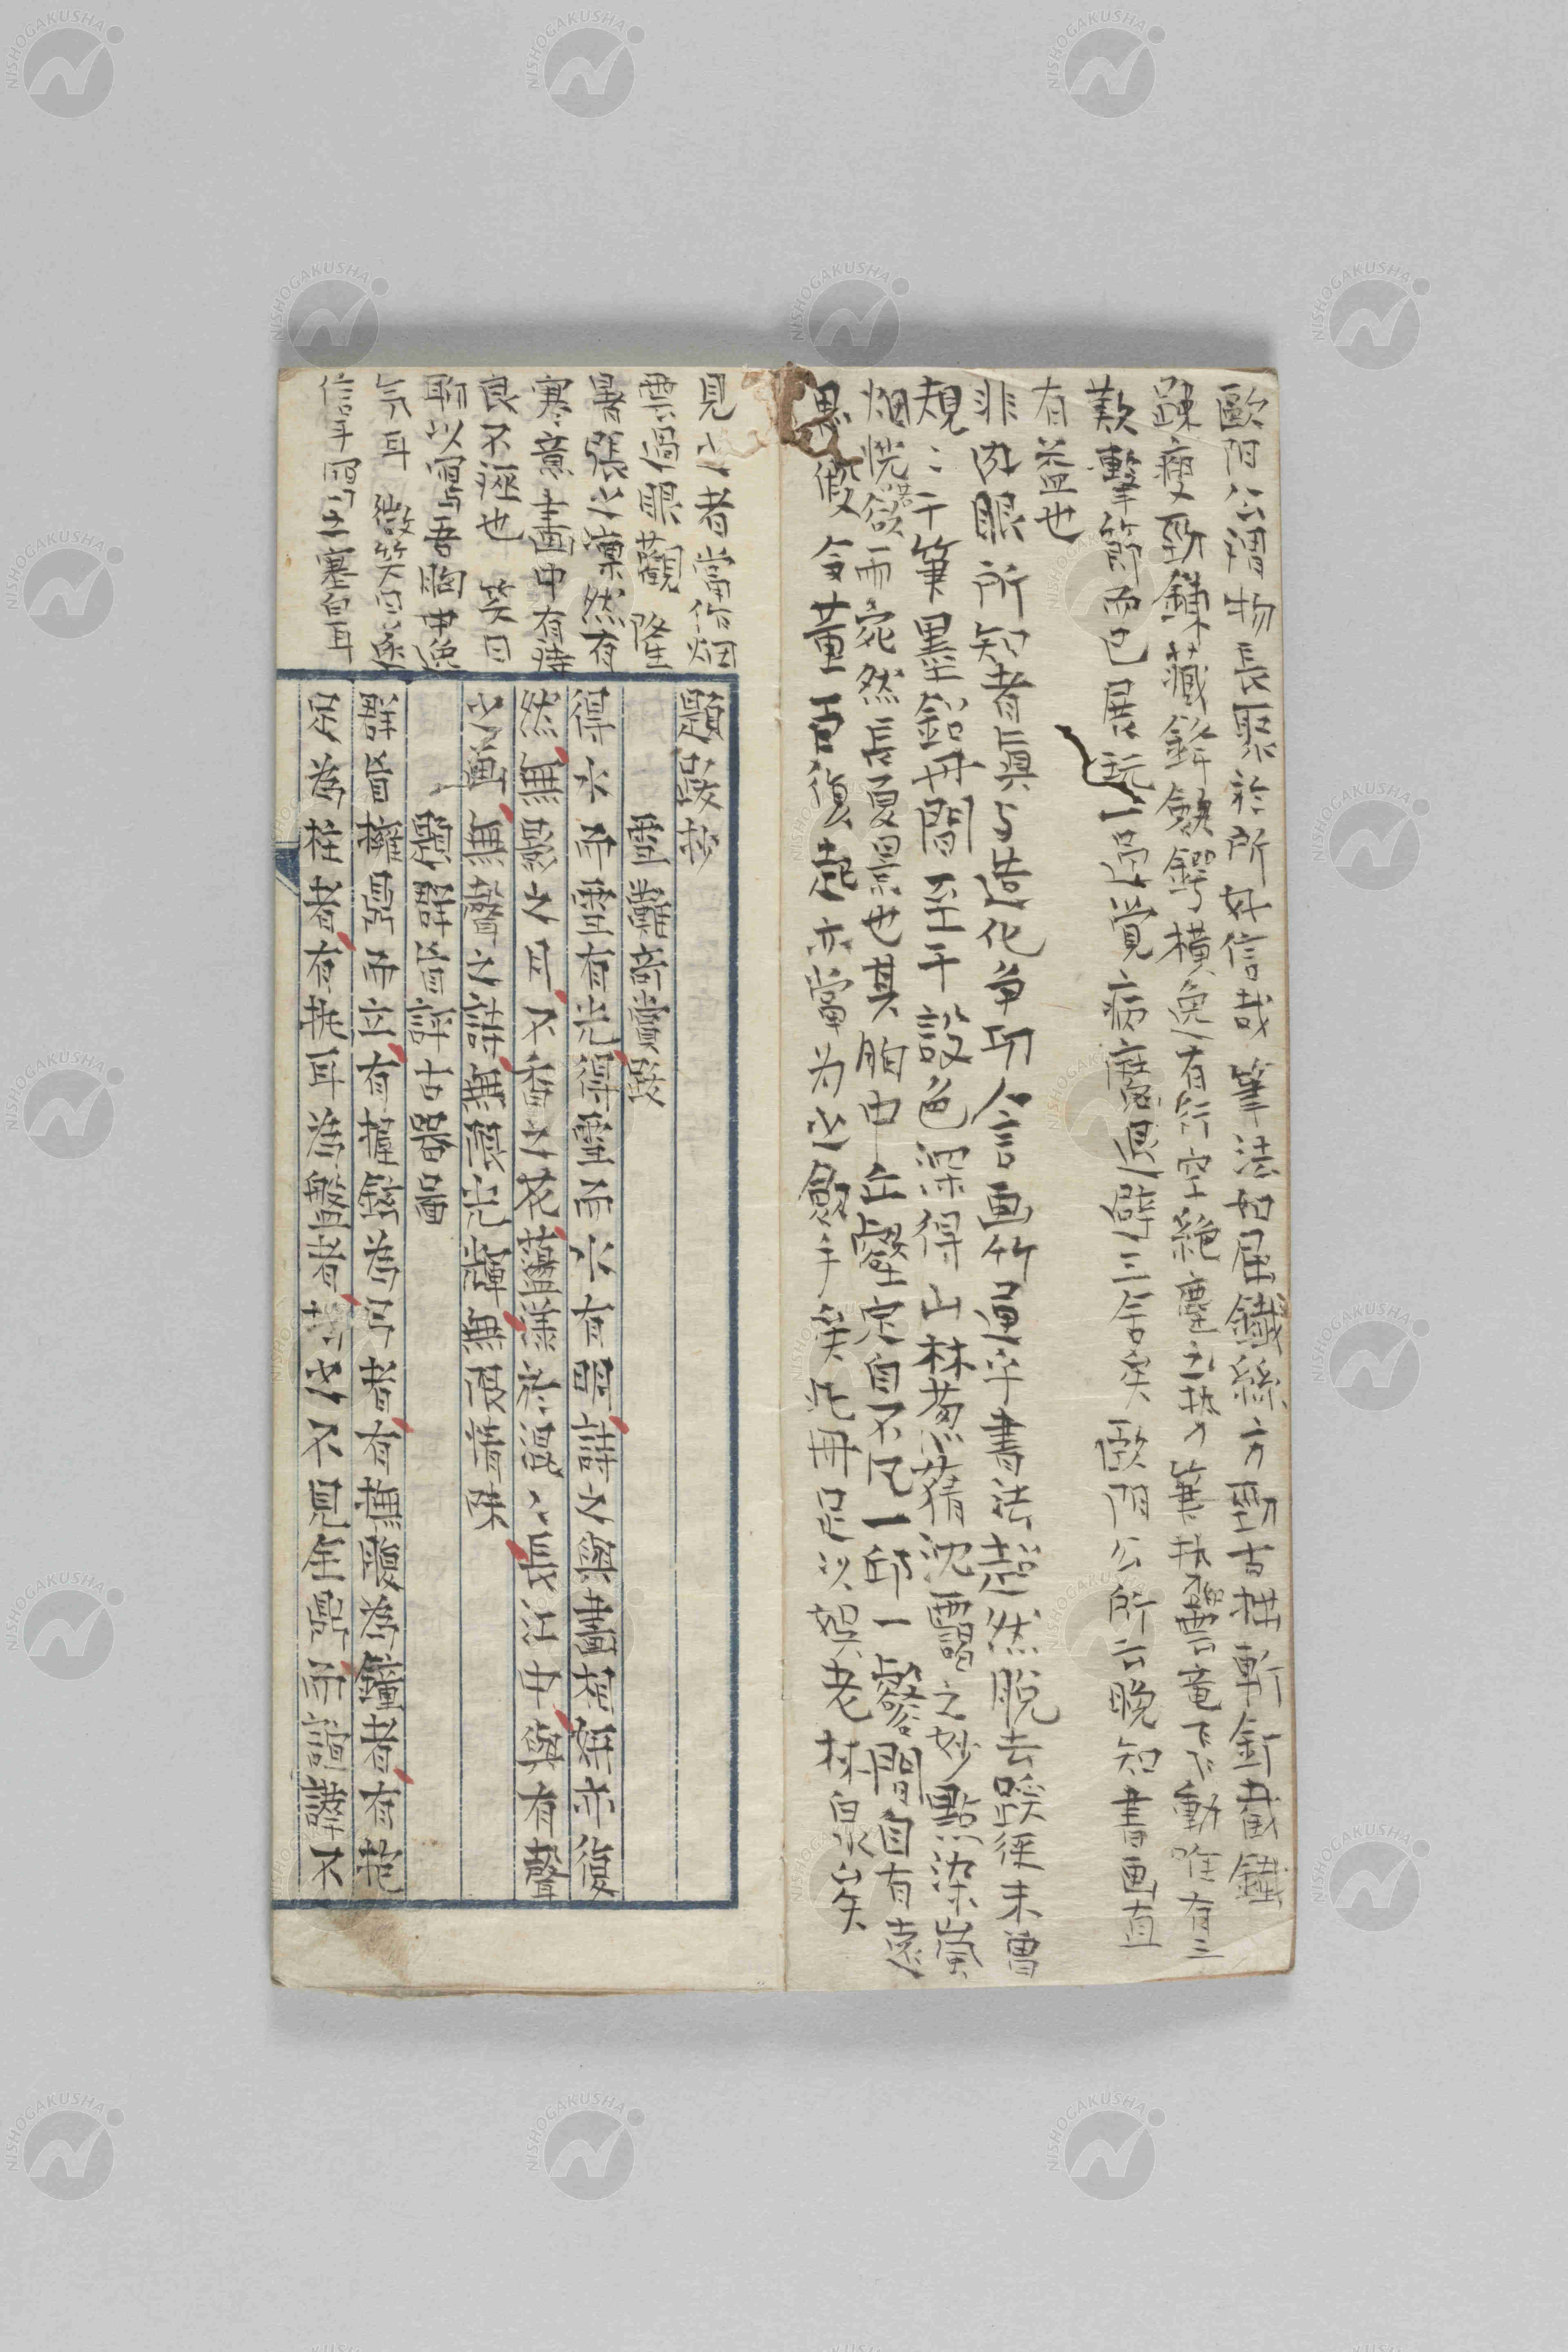 歐陽公謂物長聚於所好信哉 筆法如屈鐵絲 方勁古拙 斬釘截鐵
踈瘦勁鍊 藏鋒斂鍔 橫逸有行空絶塵之執 筆執雲竜飛動 唯有三
歎擊節而已 展玩一過覚病魔退辟三舍矣 歐陽公所云晩知書画真
有益也
非肉眼所知者眞与造化争功 人言画竹通乎書法 超然脱去蹊徑 未曽
規〻于筆墨鉛丹間 至于設色深得山林葱蒨沈靄之妙 點染嵐
烟恍若欲雨宛然長夏景也 其胸中丘壑定自不凡 一邱一壑間自有遠
思 假令董 復起亦當为之斂手矣 此冊足以娯老林泉矣
見之者當作烟
雲過眼觀 隆
暑張之凜然有
寒意 畫中有詩
良不誣也 笑曰
聊以寫吾胸中逸
气耳 微笑曰
信手写之塞白耳
題跋抄
雪灘奇賞跋
得水而雪有光得雪而水有明詩之與畫相媾亦復
然無影之月不香之花蘊 於混〻長江中與有聲
之画無聲之詩無限光輝無限情味
題群盲評古器圖
群盲擁鼎而立有 为弓者有撫腹為鐘者有抱
足為柱者有挑耳為盤者 之不見全鼎而諠譁不